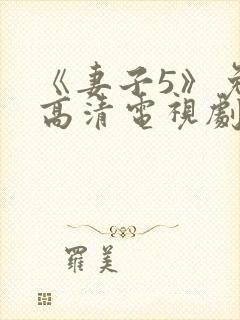 《妻子5》免
高清電視劇
羅美